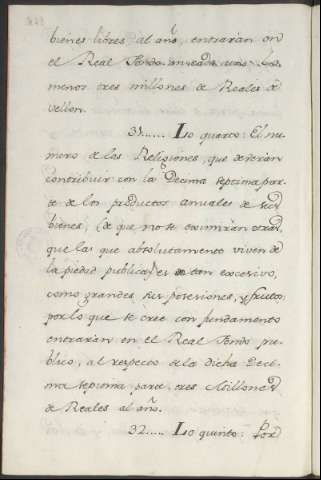 bienes libres al año, entrarán en
el Real Fondo en cada uno los
menos tres millones de Reales de
vellon.
31..... Lo quarto: El nu-
mero de las Religiones, que deverán
contribuir con la Decima septima par-
te de los productos anuales de sus
bienes, (de que no se eximirán otras,
que las que absolutamente viven de
la piedad publica) es tan excesivo,
como grandes sus posesiones, y frutos
por lo que se cree con fundamento
entrarán en el Real Fondo pu-
blico, al respecto de la dicha Deci-
ma septima parte, tres Millones
de Reales al año.
32..... Lo quinto: Por